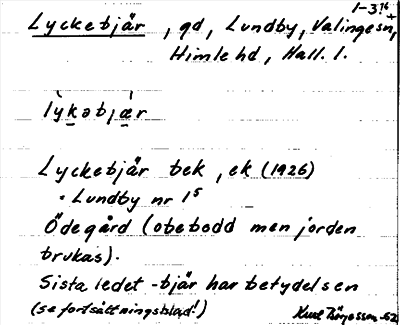 1-3?16
Lyckebjär, gd, Lundby, Valinge sn,
Himle hd, Hall. l.
lỳkəbjæ̀r
Lyckebjär bek, ek (1926)
· Lundby nr 1⁵
Ödegård (obebodd men jorden
brukas).
Sista ledet -bjär har betydelsen
(se fortsättningsblad!) Kurt Börjesson -52